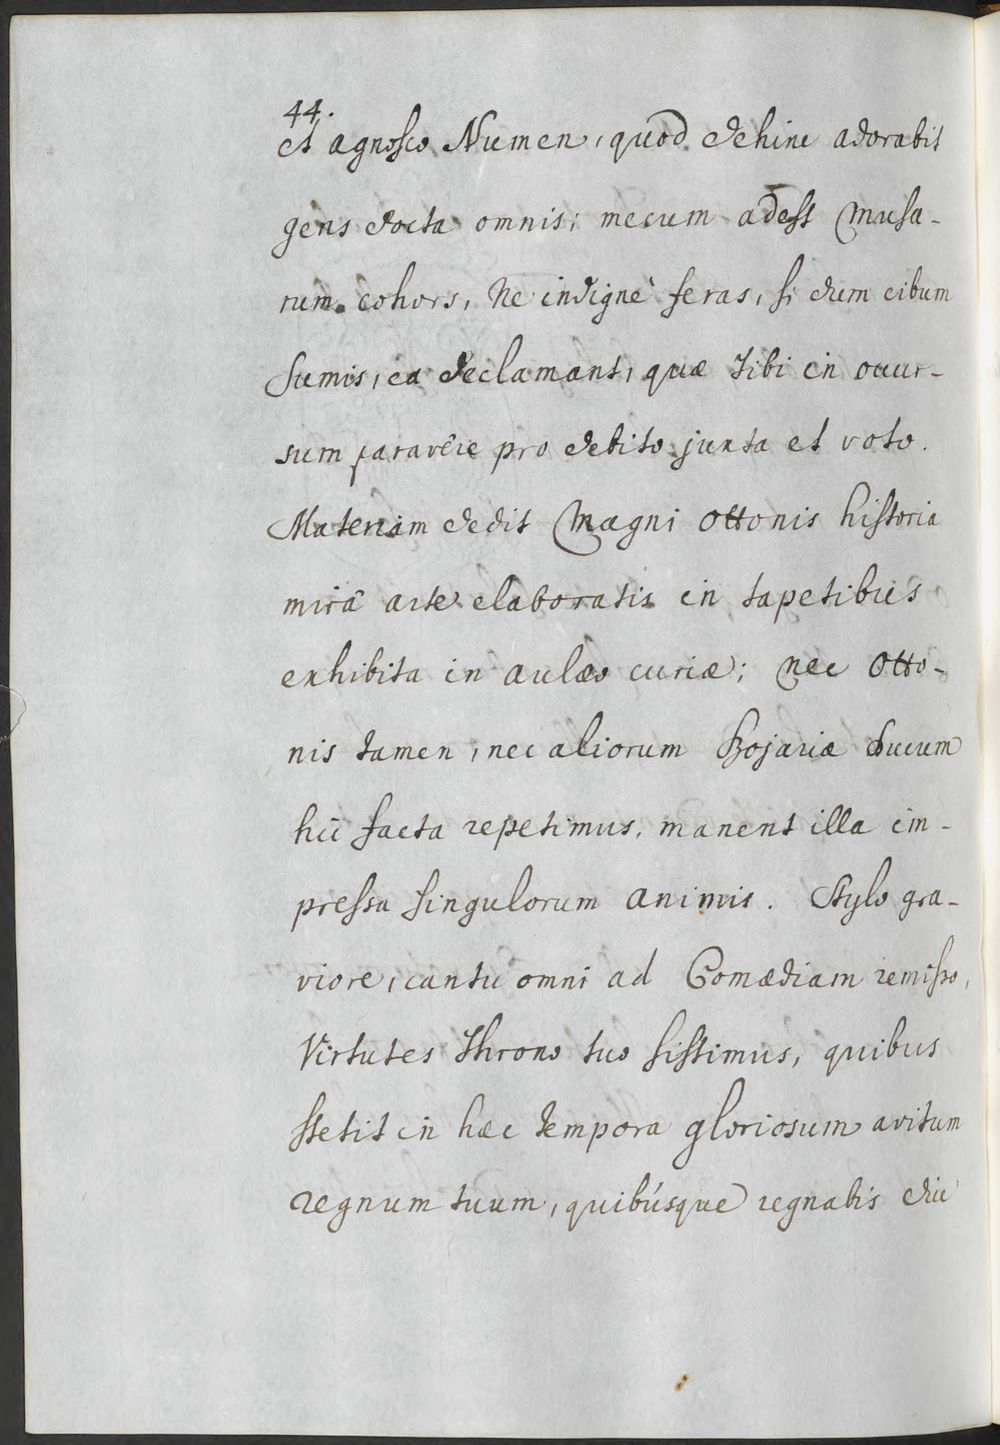 44.
et agnosco Numen, quod dehinc adorabit
gens docta omnis; mecum adest Musa-
rum cohors, Ne indignè feras, si dum cibum
sumis, ea declamant, quæ tibi in occur-
sum paravêre pro debito juxta et voto.
Materiam dedit Magni Ottonis historia
mirâ arte elaboratis in tapetibus
exhibita in aulæo curiæ; nec Otto-
nis tamen, nec aliorum Bojariæ Ducum
hìc facta repetimus, manent illa im-
pressa singulorum animis. Stylo gra-
viore, cantu omni ad Comædiam remisso,
Virtutes throno tuo sistimus, quibus
stetit in hæc tempora gloriosum avitum
regnum tuum, quibúsque regnabis diu